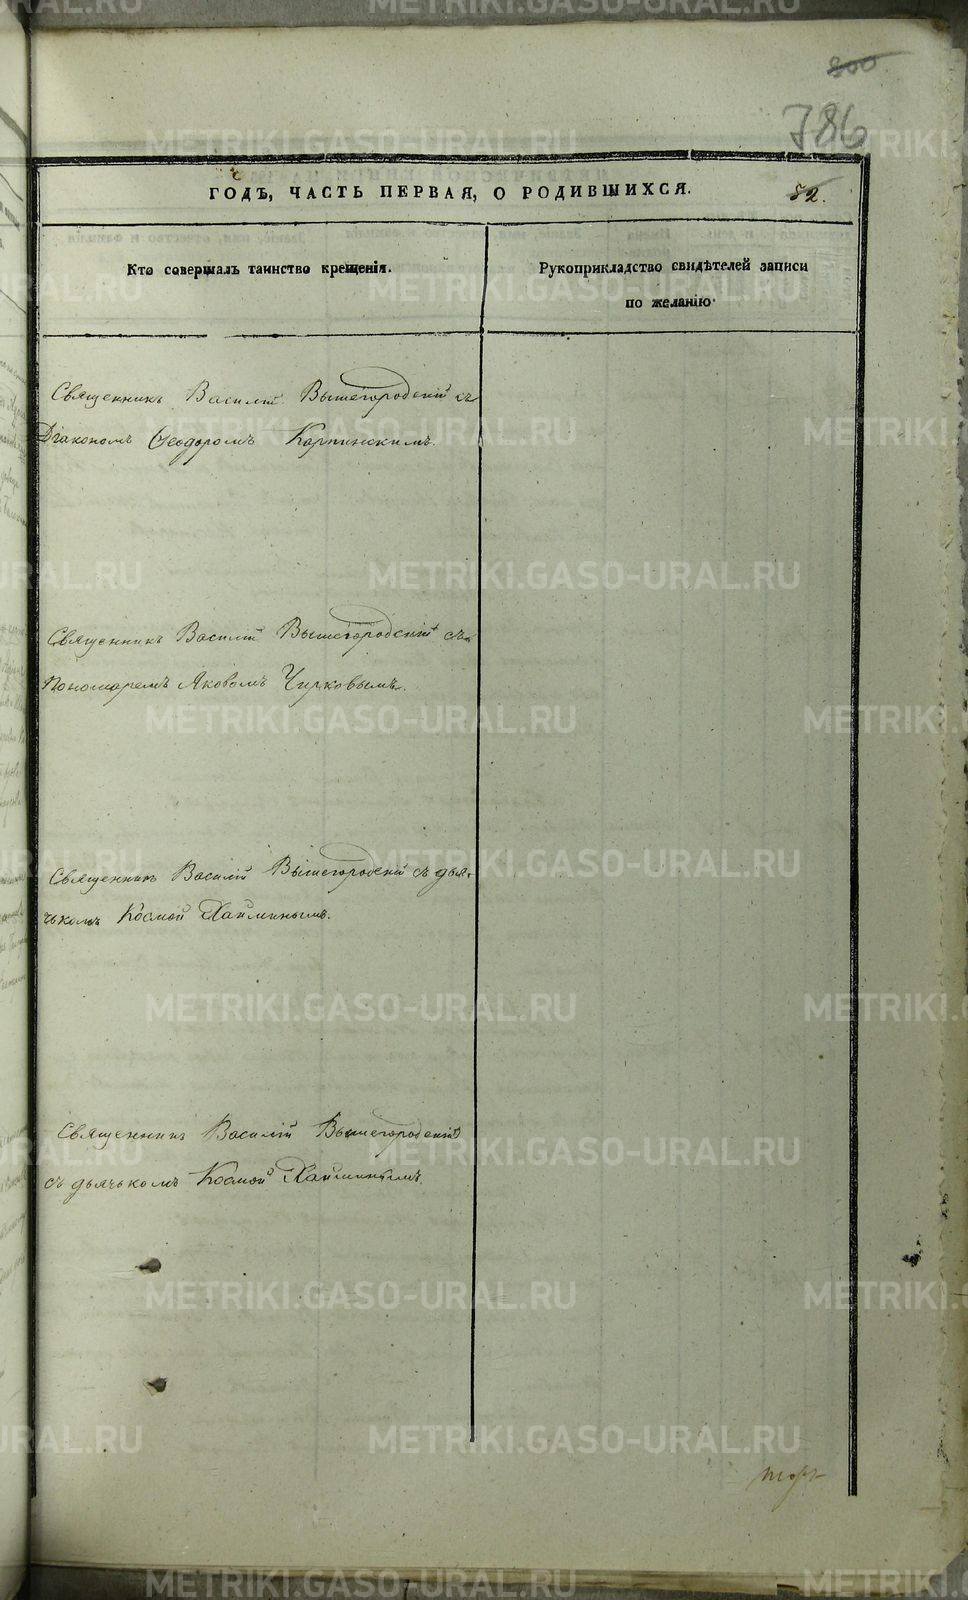 800
786
ГОДЪ, ЧАСТЬ ПЕРВАЯ, О РОДИВШИХСЯ.
82.
Кто совершалъ таинство крещенія.
Рукоприкладство свидѣтелей записи
по желанію.
Священникъ Василій Вышегородскій съ
Діакономъ Ѳеодоромъ Карпинскимъ.
Священникъ Василій Вышегородскій съ
Пономаремъ Яковомъ Чирковымъ.
Священникъ Василій Вышегородскій съ дья-
чькомъ Космой Хайминымъ.
Священникъ Василій Вышегородскій
съ дьячькомъ Космой Хайминымъ.
METRIKI.GASO-URAL.RU